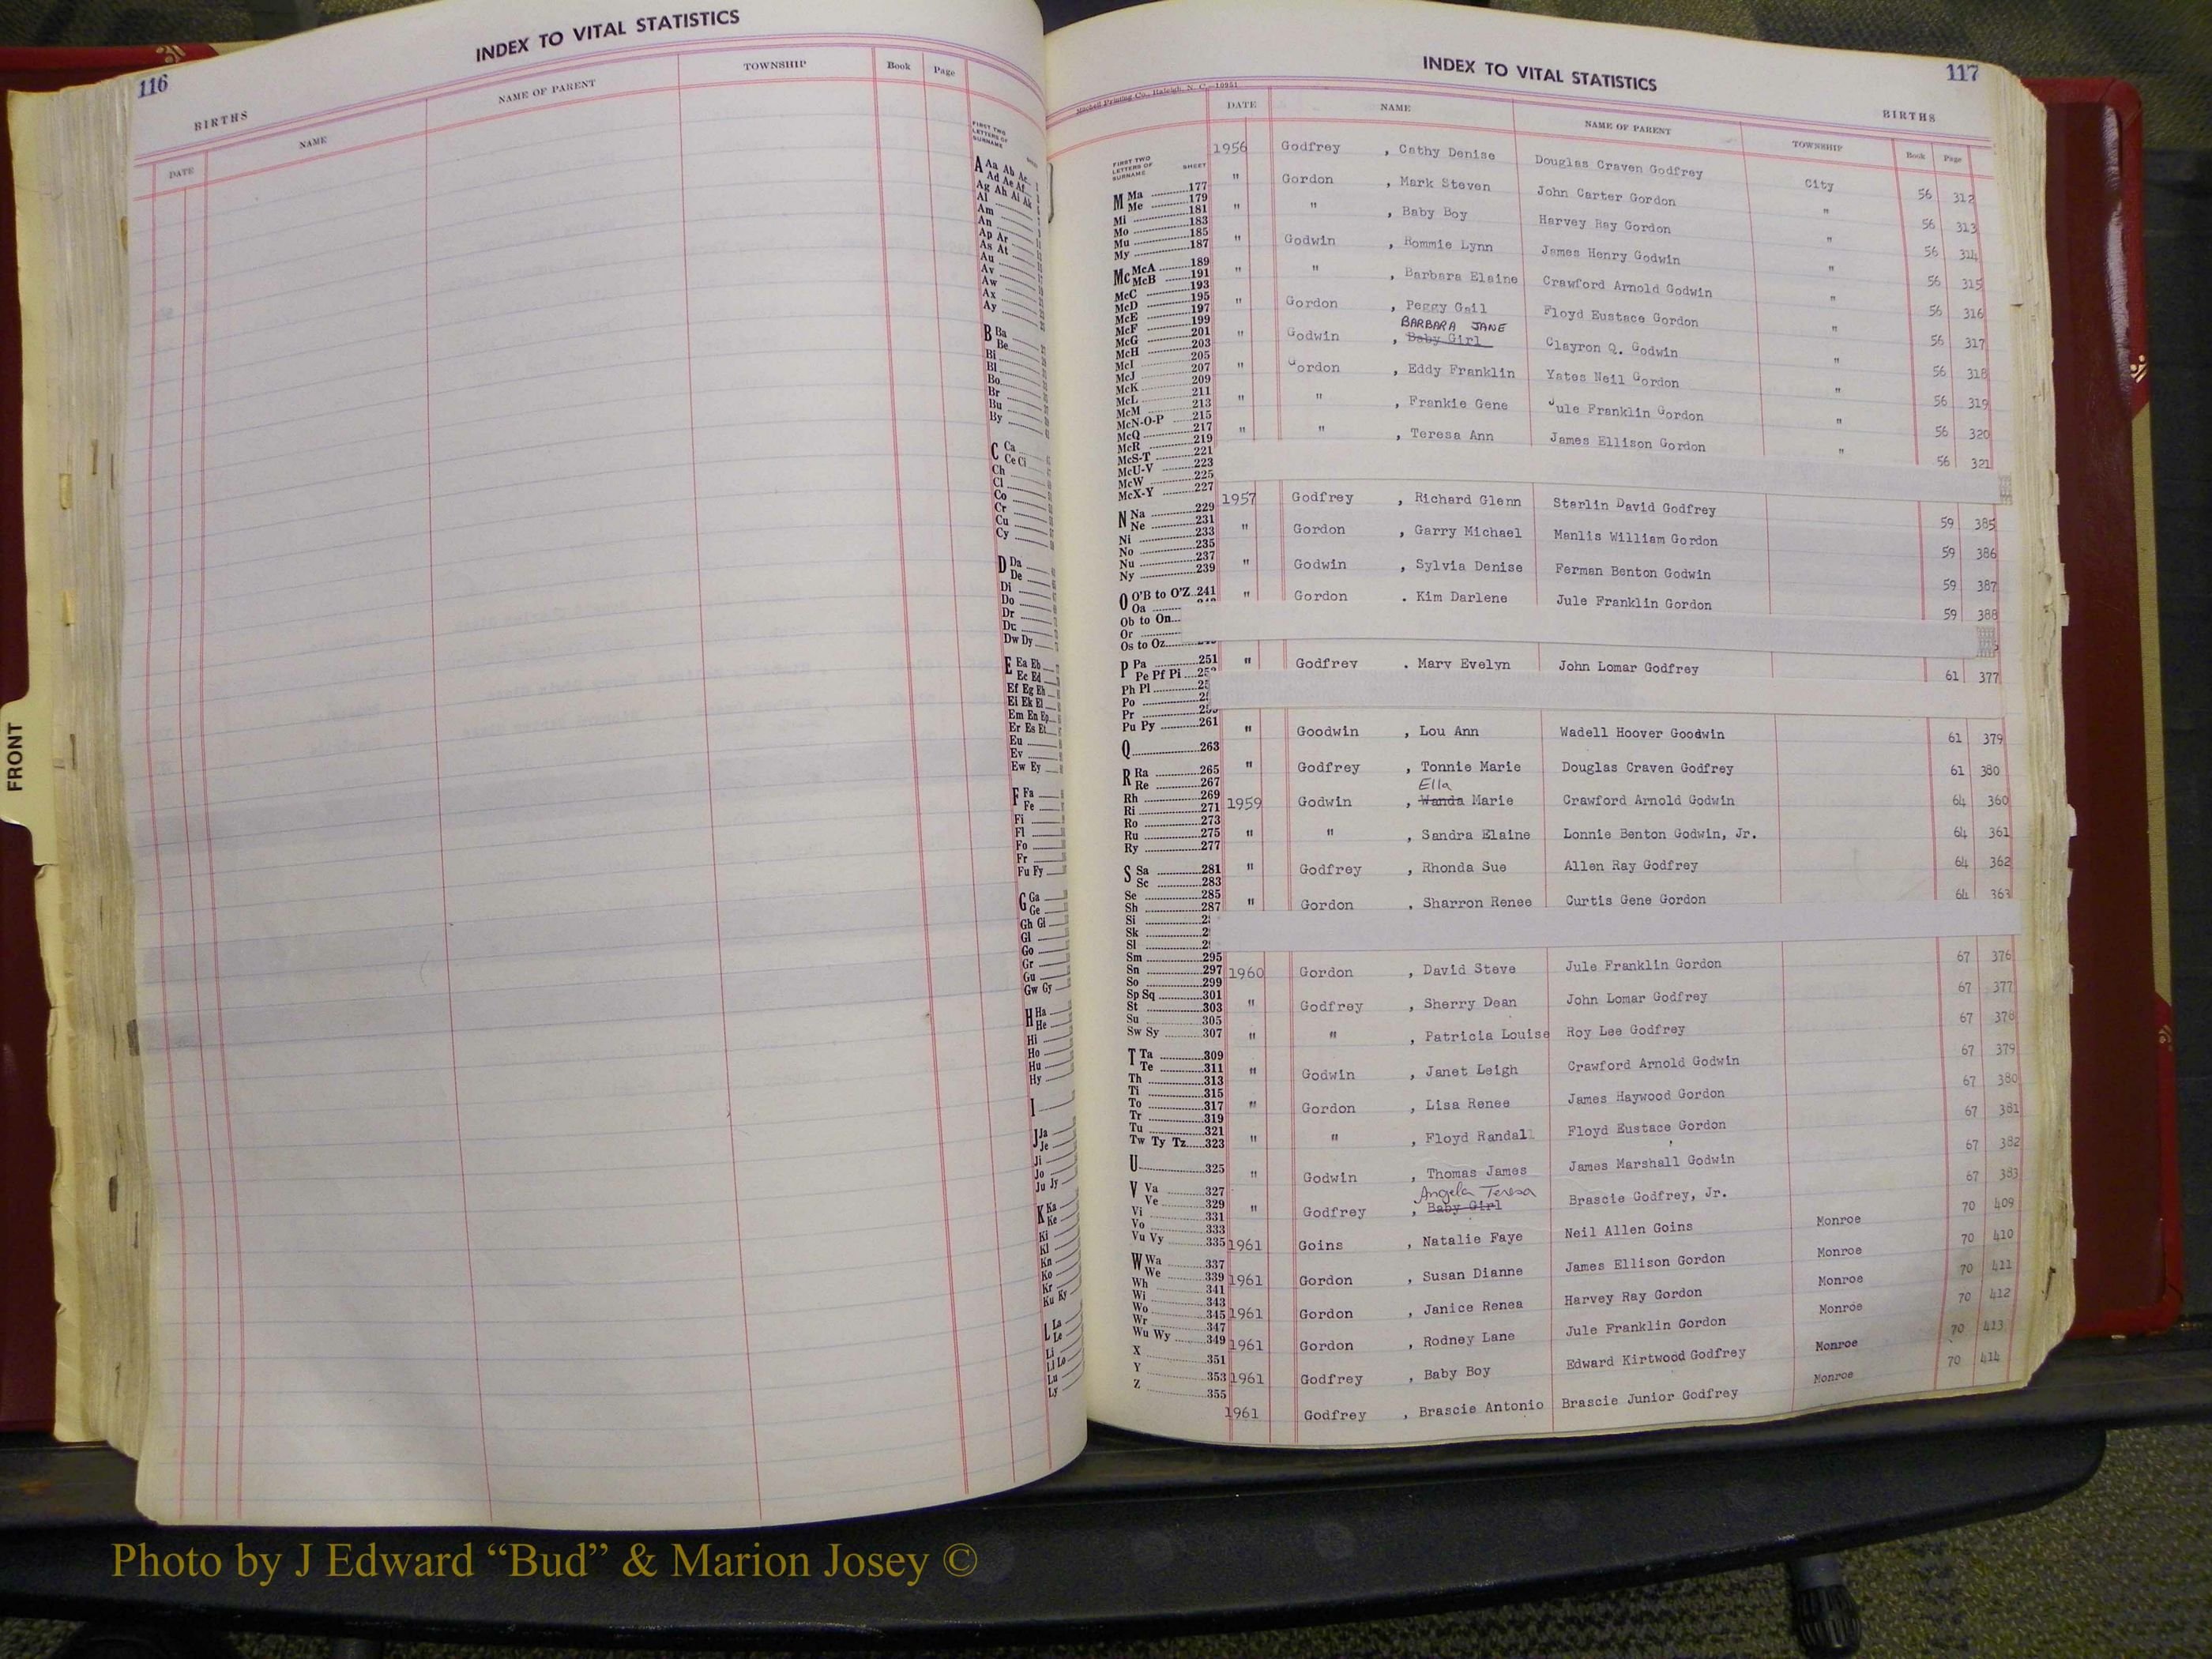 116
INDEX TO VITAL STATISTICS
BIRTHS
DATE NAME NAME OF PARENT TOWNSHIP Book Page
FIRST TWO LETTERS OF SURNAME
A Aa Ab Ac
Ad Ae Af
Ag Ah Ai Ak
Al
Am
An
Ap Ar
As At
Au
Av
Aw
Ax
Ay
B Ba
Be
Bi
Bl
Bo
Br
Bu
By
C Ca
Ce Ci
Ch
Cl
Co
Cr
Cu
Cy
D Da
De
Di
Do
Dr
Du
Dw Dy
E Ea Eb
Ec Ed
Ef Eg Eh
Ei Ek El
Em En Ep
Er Es Et
Eu
Ev
Ew Ey
F Fa
Fe
Fi
Fl
Fo
Fr
Fu Fy
G Ga
Ge
Gh Gi
Gl
Go
Gr
Gu
Gw Gy
H Ha
He
Hi
Ho
Hu
Hy
I
J Ja
Je
Ji
Jo
Ju Jy
K Ka
Ke
Ki
Kl
Kn
Ko
Kr
Ku Ky
L La
Le
Li
Ll Lo
Lu
Ly
FRONT
INDEX TO VITAL STATISTICS
117
Mitchell Printing Co., Raleigh, N. C.—10951
BIRTHS
DATE NAME NAME OF PARENT TOWNSHIP Book Page
FIRST TWO LETTERS OF SURNAME SHEET
M Ma 177
Me 179
Mi 181
Mo 183
Mu 185
My 187
Mc McA 189
McB 191
McC 193
McD 195
McE 197
McF 199
McG 201
McH 203
McI 205
McJ 207
McK 209
McL 211
McM 213
McN-O-P 215
McQ 217
McR 219
McS-T 221
McU-V 223
McW 225
McX-Y 227
N Na 229
Ne 231
Ni 233
No 235
Nu 237
Ny 239
O O'B to O'Z 241
Oa
Ob to On
Or
Os to Oz
P Pa 251
Pe Pf Pi
Ph Pl
Po
Pr
Pu Py 261
Q 263
R Ra 265
Re 267
Rh 269
Ri 271
Ro 273
Ru 275
Ry 277
S Sa 281
Sc 283
Se 285
Sh 287
Si
Sk
Sl
Sm 295
Sn 297
So 299
Sp Sq 301
St 303
Su 305
Sw Sy 307
T Ta 309
Te 311
Th 313
Ti 315
To 317
Tr 319
Tu 321
Tw Ty Tz 323
U 325
V Va 327
Ve 329
Vi 331
Vo 333
Vu Vy 335
W Wa 337
We 339
Wh 341
Wi 343
Wo 345
Wr 347
Wu Wy 349
X 351
Y 353
Z 355
1956 Godfrey , Cathy Denise Douglas Craven Godfrey City 56 312
" Gordon , Mark Steven John Carter Gordon " 56 313
" " , Baby Boy Harvey Ray Gordon " 56 314
" Godwin , Rommie Lynn James Henry Godwin " 56 315
" " , Barbara Elaine Crawford Arnold Godwin " 56 316
" Gordon , Peggy Gail Floyd Eustace Gordon " 56 317
BARBARA JANE
" Godwin , Baby Girl Clayron Q. Godwin " 56 318
" Gordon , Eddy Franklin Yates Neil Gordon " 56 319
" " , Frankie Gene Jule Franklin Gordon " 56 320
" " , Teresa Ann James Ellison Gordon " 56 321
1957 Godfrey , Richard Glenn Sterlin David Godfrey 59 385
" Gordon , Garry Michael Manlis William Gordon 59 386
" Godwin , Sylvia Denise Ferman Benton Godwin 59 387
" Gordon , Kim Darlene Jule Franklin Gordon 59 388
" Godfrey , Mary Evelyn John Lomar Godfrey 61 377
" Goodwin , Lou Ann Wadell Hoover Goodwin 61 379
" Godfrey , Tonnie Marie Douglas Craven Godfrey 61 380
Ella
1959 Godwin , Wanda Marie Crawford Arnold Godwin 64 360
" " , Sandra Elaine Lonnie Benton Godwin, Jr. 64 361
" Godfrey , Rhonda Sue Allen Ray Godfrey 64 362
" Gordon , Sharron Renee Curtis Gene Gordon 64 363
1960 Gordon , David Steve Jule Franklin Gordon 67 376
" Godfrey , Sherry Dean John Lomar Godfrey 67 377
" " , Patricia Louise Roy Lee Godfrey 67 378
" Godwin , Janet Leigh Crawford Arnold Godwin 67 379
" Gordon , Lisa Renee James Haywood Gordon 67 380
" " , Floyd Randall Floyd Eustace Gordon 67 381
" Godwin , Thomas James James Marshall Godwin 67 382
Angela Teresa
" Godfrey , Baby Girl Brascie Godfrey, Jr. 67 383
1961 Goins , Natalie Faye Neil Allen Goins Monroe 70 409
1961 Gordon , Susan Dianne James Ellison Gordon Monroe 70 410
1961 Gordon , Janice Renea Harvey Ray Gordon Monroe 70 411
1961 Gordon , Rodney Lane Jule Franklin Gordon Monroe 70 412
1961 Godfrey , Baby Boy Edward Kirtwood Godfrey Monroe 70 413
1961 Godfrey , Brascie Antonio Brascie Junior Godfrey Monroe 70 414
Photo by J Edward “Bud” & Marion Josey ©